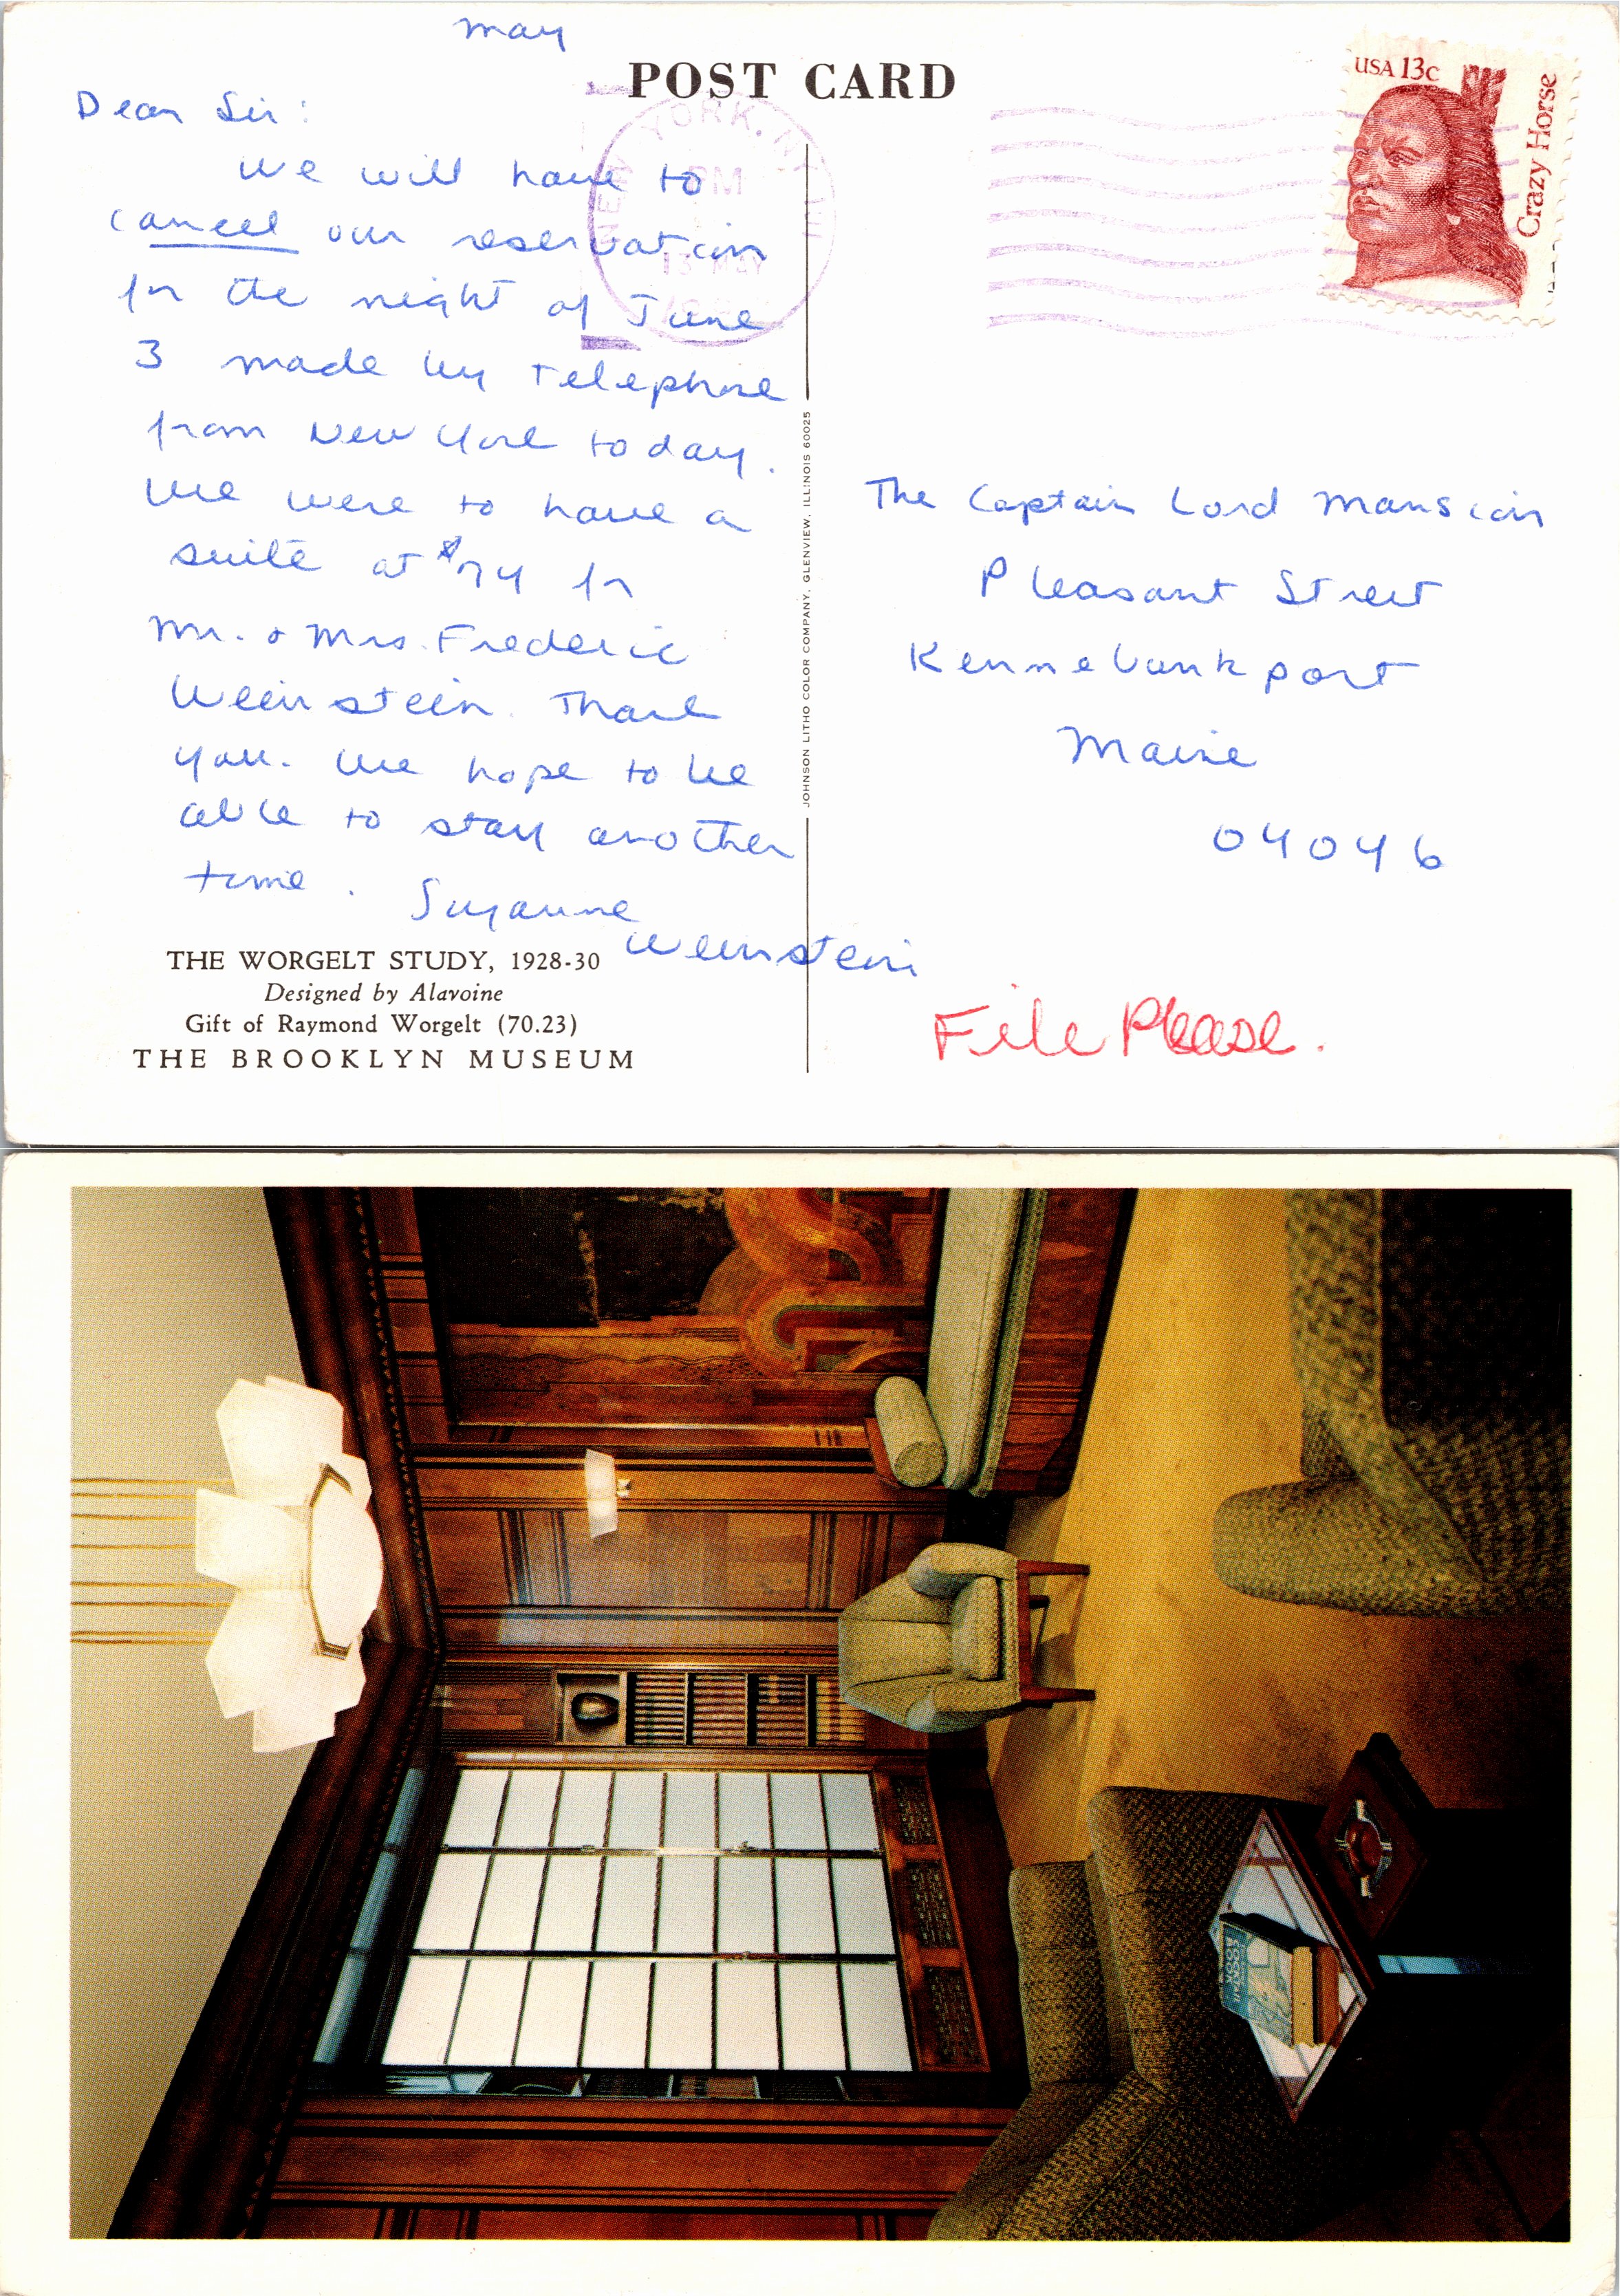 May
POST CARD
USA 13c
Crazy Horse
NEW YORK, NY
PM
13 MAY
Dear Sir:
We will have to
cancel our reservation
for the night of June
3 made by telephone
from New York today.
We were to have a
suite at $74 for
Mr. & Mrs. Frederic
Weinstein. Thank
you. We hope to be
able to stay another
time. Suzanne
Weinstein
The Captain Lord Mansion
Pleasant Street
Kennebunkport
Maine
04046
File Please.
JOHNSON LITHO COLOR COMPANY, GLENVIEW, ILLINOIS 60025
THE WORGELT STUDY, 1928-30
Designed by Alavoine
Gift of Raymond Worgelt (70.23)
THE BROOKLYN MUSEUM
COCKTAIL
BOOK